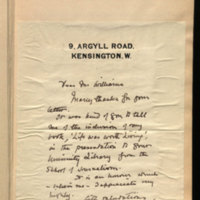 9, ARGYLL ROAD,
KENSINGTON, W.
Dear Mr Williams
Many thanks for your
letter.
It was kind of you to tell
me of the inclusion of my
book, 'Life was worth living',
in the presentation to your
University Library from the
School of Journalism.
It is an honour which
I appreciate very
highly.
With salutations